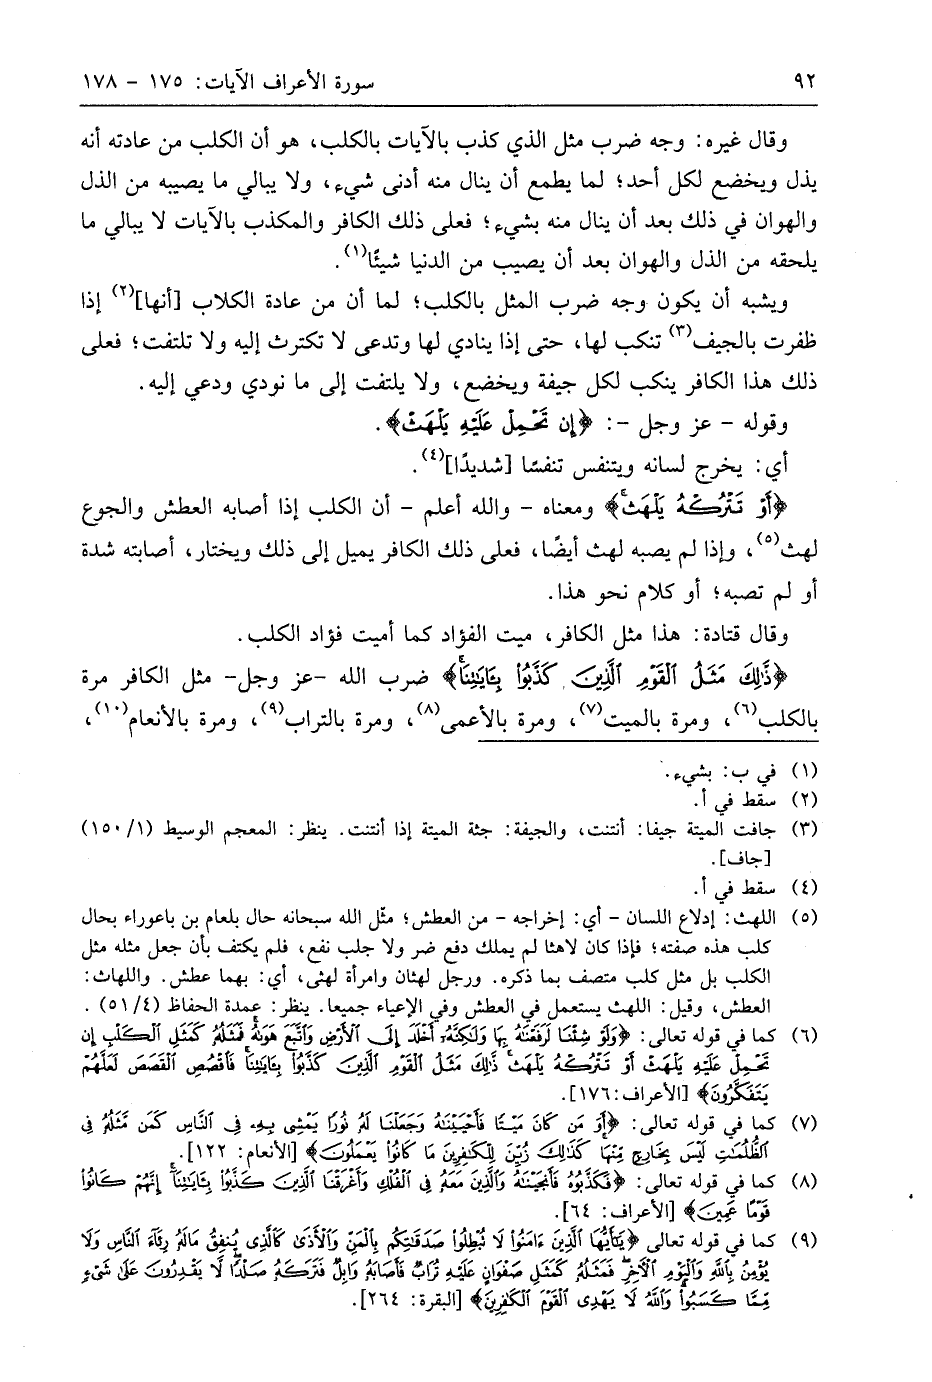 ٩٢ سورة الأعراف الآيات: ١٧٥ - ١٧٨
وقال غيره: وجه ضرب مثل الذي كذب بالآيات بالكلب، هو أن الكلب من عادته أنه
يذل ويخضع لكل أحد؛ لما يطمع أن ينال منه أدنى شيء، ولا يبالي ما يصيبه من الذل
والهوان في ذلك بعد أن ينال منه بشيء؛ فعلى ذلك الكافر والمكذب بالآيات لا يبالي ما
يلحقه من الذل والهوان بعد أن يصيب من الدنيا شيئًا(١).
ويشبه أن يكون وجه ضرب المثل بالكلب؛ لما أن من عادة الكلاب [أنها](٢) إذا
ظفرت بالجيف(٣) تنكب لها، حتى إذا ينادي لها وتدعى لا تكترث إليه ولا تلتفت؛ فعلى
ذلك هذا الكافر ينكب لكل جيفة ويخضع، ولا يلتفت إلى ما نودي ودعي إليه.
وقوله - عز وجل -: ﴿إِن تَحْمِلْ عَلَيْهِ يَلْهَثْ﴾.
أي: يخرج لسانه ويتنفس تنفسًا [شديدًا](٤).
﴿أَوْ تَتْرُكْهُ يَلْهَثْ﴾ ومعناه - والله أعلم - أن الكلب إذا أصابه العطش والجوع
لهث(٥)، وإذا لم يصبه لهث أيضًا، فعلى ذلك الكافر يميل إلى ذلك ويختار، أصابته شدة
أو لم تصبه؛ أو كلام نحو هذا.
وقال قتادة: هذا مثل الكافر، ميت الفؤاد كما أميت فؤاد الكلب.
﴿ذَّٰلِكَ مَثَلُ ٱلْقَوْمِ ٱلَّذِينَ كَذَّبُوا۟ بِـَٔايَـٰتِنَا﴾ ضرب الله -عز وجل- مثل الكافر مرة
بالكلب(٦)، ومرة بالميت(٧)، ومرة بالأعمى(٨)، ومرة بالتراب(٩)، ومرة بالأنعام(١٠)،
(١) في ب: بشيء.
(٢) سقط في أ.
(٣) جافت الميتة جيفا: أنتنت، والجيفة: جثة الميتة إذا أنتنت. ينظر: المعجم الوسيط (١/ ١٥٠)
[جاف].
(٤) سقط في أ.
(٥) اللهث: إدلاع اللسان - أي: إخراجه - من العطش؛ مثّل الله سبحانه حال بلعام بن باعوراء بحال
كلب هذه صفته؛ فإذا كان لاهثا لم يملك دفع ضر ولا جلب نفع، فلم يكتف بأن جعل مثله مثل
الكلب بل مثل كلب متصف بما ذكره. ورجل لهثان وامرأة لهثى، أي: بهما عطش. واللهاث:
العطش، وقيل: اللهث يستعمل في العطش وفي الإعياء جميعا. ينظر: عمدة الحفاظ (٤/ ٥١).
(٦) كما في قوله تعالى: ﴿وَلَوْ شِئْنَا لَرَفَعْنَـٰهُ بِهَا وَلَـٰكِنَّهُۥٓ أَخْلَدَ إِلَى ٱلْأَرْضِ وَٱتَّبَعَ هَوَىٰهُ فَمَثَلُهُۥ كَمَثَلِ ٱلْكَلْبِ إِن
تَحْمِلْ عَلَيْهِ يَلْهَثْ أَوْ تَتْرُكْهُ يَلْهَث ذَّٰلِكَ مَثَلُ ٱلْقَوْمِ ٱلَّذِينَ كَذَّبُوا۟ بِـَٔايَـٰتِنَا فَٱقْصُصِ ٱلْقَصَصَ لَعَلَّهُمْ
يَتَفَكَّرُونَ﴾ [الأعراف:١٧٦].
(٧) كما في قوله تعالى: ﴿أَوَ مَن كَانَ مَيْتًا فَأَحْيَيْنَـٰهُ وَجَعَلْنَا لَهُۥ نُورًا يَمْشِى بِهِۦ فِى ٱلنَّاسِ كَمَن مَّثَلُهُۥ فِى
ٱلظُّلُمَـٰتِ لَيْسَ بِخَارِجٍ مِّنْهَا كَذَٰلِكَ زُيِّنَ لِلْكَـٰفِرِينَ مَا كَانُوا۟ يَعْمَلُونَ﴾ [الأنعام: ١٢٢].
(٨) كما في قوله تعالى: ﴿فَكَذَّبُوهُ فَأَنجَيْنَـٰهُ وَٱلَّذِينَ مَعَهُۥ فِى ٱلْفُلْكِ وَأَغْرَقْنَا ٱلَّذِينَ كَذَّبُوا۟ بِـَٔايَـٰتِنَا إِنَّهُمْ كَانُوا۟
قَوْمًا عَمِينَ﴾ [الأعراف: ٦٤].
(٩) كما في قوله تعالى ﴿يَـٰٓأَيُّهَا ٱلَّذِينَ ءَامَنُوا۟ لَا تُبْطِلُوا۟ صَدَقَـٰتِكُم بِٱلْمَنِّ وَٱلْأَذَىٰ كَٱلَّذِى يُنفِقُ مَالَهُۥ رِئَآءَ ٱلنَّاسِ وَلَا
يُؤْمِنُ بِٱللَّهِ وَٱلْيَوْمِ ٱلْـَٔاخِرِ فَمَثَلُهُۥ كَمَثَلِ صَفْوَانٍ عَلَيْهِ تُرَابٌ فَأَصَابَهُۥ وَابِلٌ فَتَرَكَهُۥ صَلْدًا لَّا يَقْدِرُونَ عَلَىٰ شَىْءٍ
مِّمَّا كَسَبُوا۟ وَٱللَّهُ لَا يَهْدِى ٱلْقَوْمَ ٱلْكَـٰفِرِينَ﴾ [البقرة: ٢٦٤].